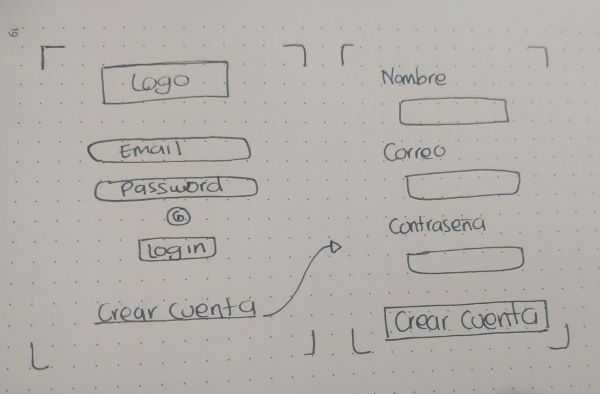 19
Logo
Email
Password
G
Login
Crear cuenta
Nombre
Correo
Contraseña
Crear cuenta